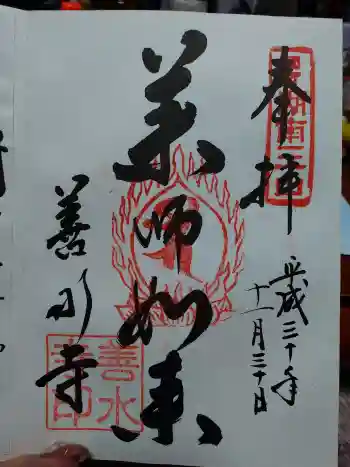 奉拝
平成三十年
十一月三十日
薬師如来
善水寺
善水
寺印